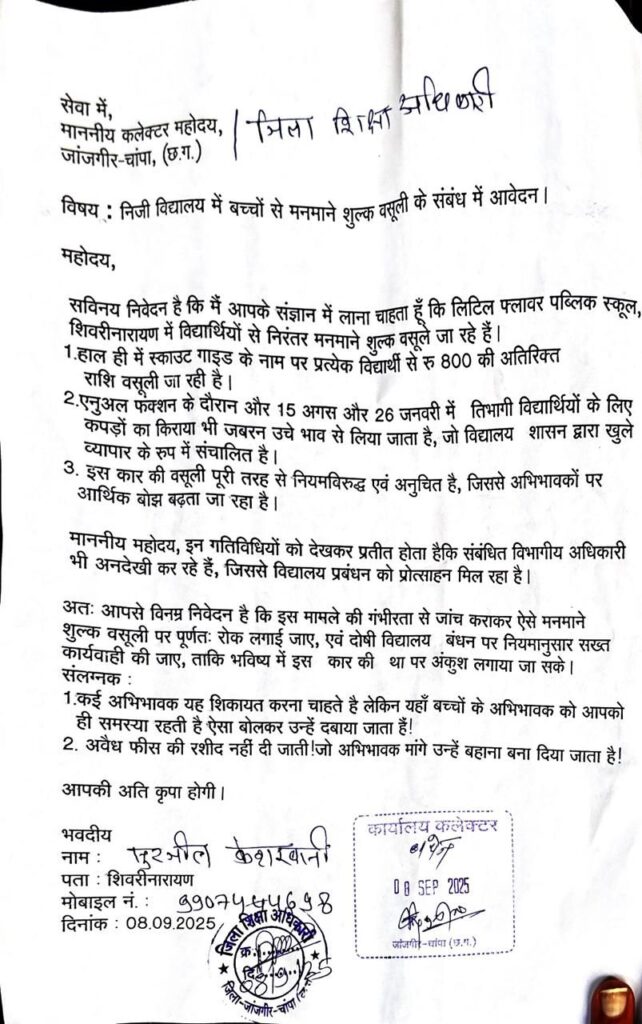 सेवा में,
माननीय कलेक्टर महोदय, / जिला शिक्षा अधिकारी
जांजगीर-चांपा, (छ.ग.)
विषय : निजी विद्यालय में बच्चों से मनमाने शुल्क वसूली के संबंध में आवेदन।
महोदय,
सविनय निवेदन है कि मैं आपके संज्ञान में लाना चाहता हूँ कि लिटिल फ्लावर पब्लिक स्कूल,
शिवरीनारायण में विद्यार्थियों से निरंतर मनमाने शुल्क वसूले जा रहे हैं।
1.हाल ही में स्काउट गाइड के नाम पर प्रत्येक विद्यार्थी से रु 800 की अतिरिक्त
राशि वसूली जा रही है।
2.एनुअल फंक्शन के दौरान और 15 अगस और 26 जनवरी में तिभागी विद्यार्थियों के लिए
कपड़ों का किराया भी जबरन उचे भाव से लिया जाता है, जो विद्यालय शासन द्वारा खुले
व्यापार के रुप में संचालित है।
3. इस कार की वसूली पूरी तरह से नियमविरुद्ध एवं अनुचित है, जिससे अभिभावकों पर
आर्थिक बोझ बढ़ता जा रहा है।
माननीय महोदय, इन गतिविधियों को देखकर प्रतीत होता हैकि संबंधित विभागीय अधिकारी
भी अनदेखी कर रहे हैं, जिससे विद्यालय प्रबंधन को प्रोत्साहन मिल रहा है।
अतः आपसे विनम्र निवेदन है कि इस मामले की गंभीरता से जांच कराकर ऐसे मनमाने
शुल्क वसूली पर पूर्णतः रोक लगाई जाए, एवं दोषी विद्यालय बंधन पर नियमानुसार सख्त
कार्यवाही की जाए, ताकि भविष्य में इस कार की था पर अंकुश लगाया जा सके।
संलग्नक :
1.कई अभिभावक यह शिकायत करना चाहते है लेकिन यहाँ बच्चों के अभिभावक को आपको
ही समस्या रहती है ऐसा बोलकर उन्हें दबाया जाता हैं!
2. अवैध फीस की रशीद नहीं दी जाती!जो अभिभावक मांगे उन्हें बहाना बना दिया जाता है!
आपकी अति कृपा होगी।
भवदीय
नाम : केशरवानी
पता : शिवरीनारायण
मोबाइल नं. : 9907444698
दिनांक : 08.09.2025
कार्यालय कलेक्टर
08 SEP 2025
जांजगीर-चांपा (छ.ग.)
जिला शिक्षा अधिकारी
क्र.
दि.
जिला-जांजगीर-चांपा